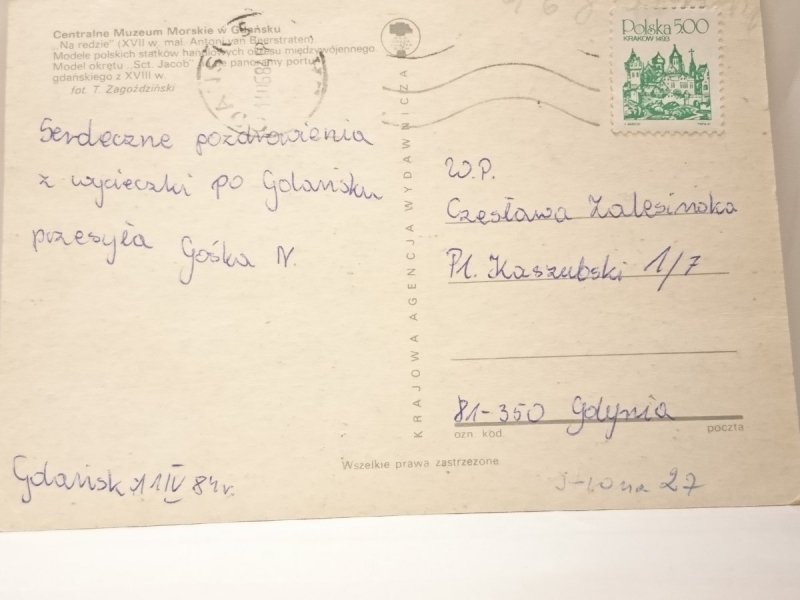 Centralne Muzeum Morskie w Gdańsku
„Na redzie" (XVII w. mal. Antoni van Beerstratem)
Modele polskich statków handlowych okresu międzywojennego
Model okrętu „Sct. Jacob" panoramy portu
gdańskiego z XVIII w.
fot. T. Zagoździński
Serdeczne pozdrowienia
z wycieczki po Gdańsku
przesyła Gośka N.
Gdańsk 11 IV 84r.
KRAJOWA AGENCJA WYDAWNICZA
Wszelkie prawa zastrzeżone
Polska 5.00
KRAKÓW 1493
W.P.
Czesława Zalesińska
Pl. Kaszubski 1/7
81-350 Gdynia
ozn. kod. poczta
27